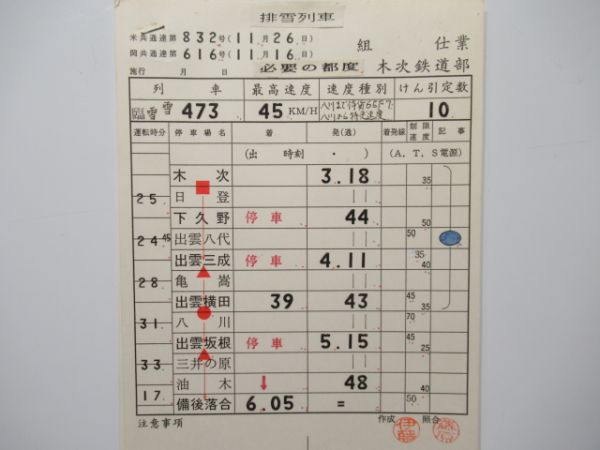 排雪列車
米共通達第 832号(11月26日)
岡共通達第 616号(11月16日)
組 仕業
施行 月 日 必要の都度 木次鉄道部
列車 最高速度 速度種別 けん引定数
臨雪 雪 473 45 KM/H 10
運転時分 停車場名 着 発(通) 着発線 制限速度 記事
(出 時刻 ・ ) (A, T, S電源)
木次 3.18
35
25 日登 ||
下久野 停車 44 50
24 45 出雲八代 || 50
出雲三成 停車 4.11 35 40
28 亀嵩 ||
出雲横田 39 43 45 35
31 八川 || 70
出雲坂根 停車 5.15 45
33 三井の原 ||
油木 ↓ 48 40
17 備後落合 6.05 = 50
注意事項 作成 照合
伊藤